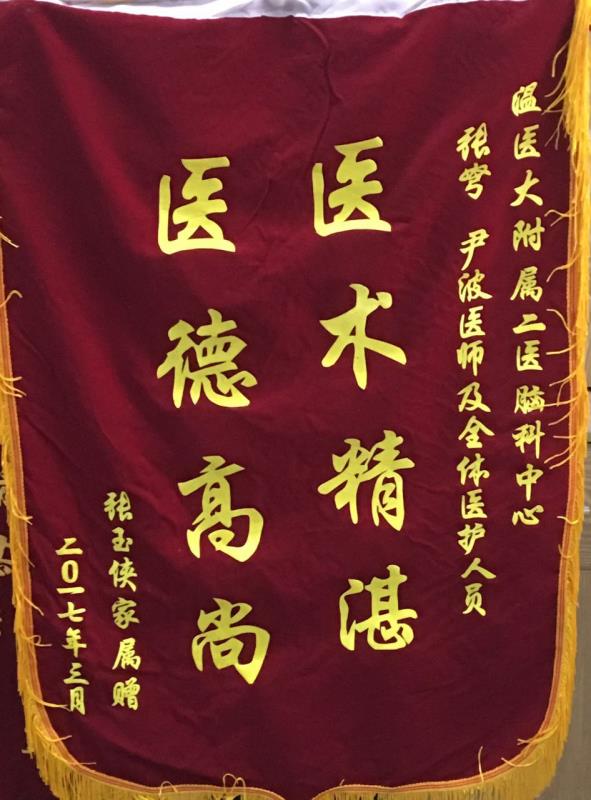 温医大附属二医脑科中心
张弩 尹波医师及全体医护人员
医术精湛
医德高尚
张玉侠家属赠
二〇一七年三月